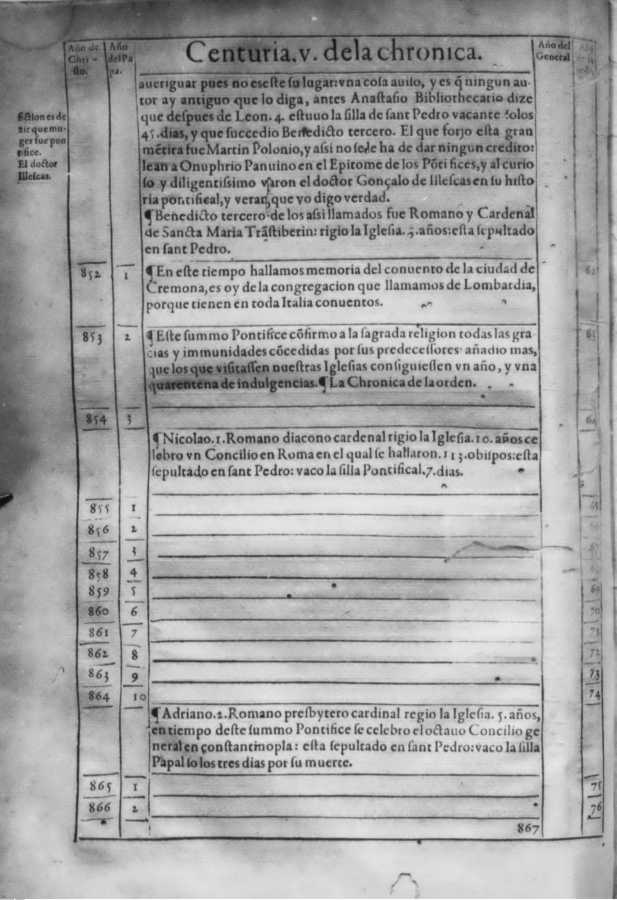 Año de Chri-sto.
Año del Pa pa.
Centuria.v. dela chronica.
Año del General
fiction es de
zir que mu-
ger fue pon
tifice.
El doctor
Illescas.
aueriguar pues no es este su lugar: vna cosa auiso, y es q̃ ningun au-
tor ay antiguo que lo diga, antes Anastasio Bibliothecario dize
que despues de Leon.4. estuuo la silla de sant Pedro vacante solos
45.dias, y que succedio Benedicto tercero. El que forjo esta gran
mẽtira fue Martin Polonio, y assi no se le ha de dar ningun credito:
lean a Onuphrio Panuino en el Epitome de los Põtifices, y al curio
so y diligentissimo varon el doctor Gonçalo de Illescas en su histo
ria pontifical, y veran que yo digo verdad.
¶Benedicto tercero de los assi llamados fue Romano y Cardenal
de Sancta Maria Trãstiberin: rigio la Iglesia.3.años: esta sepultado
en sant Pedro.
852 1 ¶En este tiempo hallamos memoria del conuento de la ciudad de 62
Cremona, es oy de la congregacion que llamamos de Lombardia,
porque tienen en toda Italia conuentos.
853 2 ¶Este summo Pontifice cõfirmo a la sagrada religion todas las gra 63
cias y immunidades cõcedidas por sus predecessores añadio mas,
que los que visitassen nuestras Iglesias consiguiessen vn año, y vna
quarentena de indulgencias.¶La Chronica de la orden.
854 3 64
¶Nicolao.1.Romano diacono cardenal rigio la Iglesia.10.años ce
lebro vn Concilio en Roma en el qual se hallaron.113.obispos: esta
sepultado en sant Pedro: vaco la silla Pontifical.7.dias.
855 1 65
856 2
857 3
858 4
859 5 69
860 6 70
861 7 71
862 8 72
863 9 73
864 10 74
¶Adriano.2.Romano presbytero cardinal regio la Iglesia.5.años,
en tiempo deste summo Pontifice se celebro el octauo Concilio ge
neral en constantinopla: esta sepultado en sant Pedro: vaco la silla
Papal solos tres dias por su muerte.
865 1 75
866 2 76
867